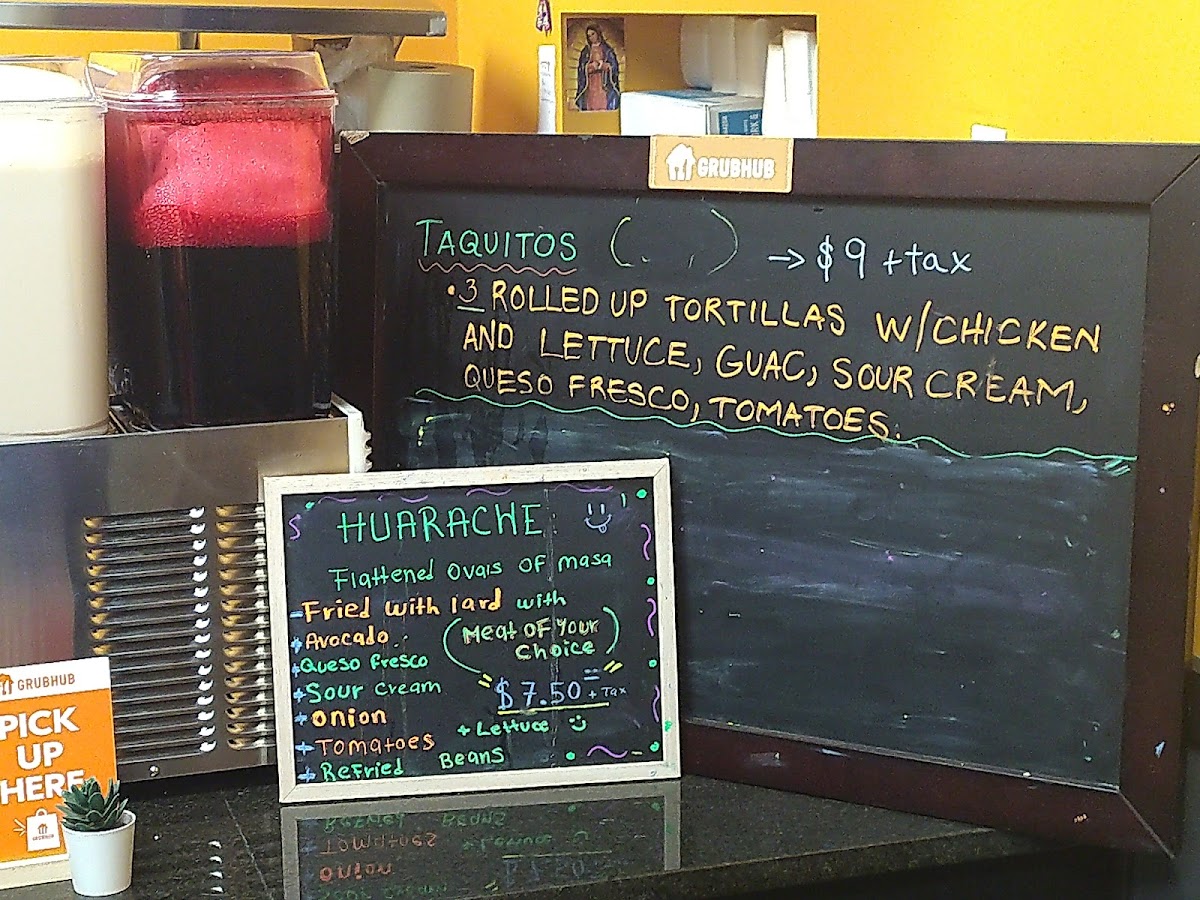 GRUBHUB
TAQUITOS ( ) → $9 +tax
• 3 ROLLED UP TORTILLAS W/CHICKEN
AND LETTUCE, GUAC, SOUR CREAM,
QUESO FRESCO, TOMATOES.
HUARACHE
Flattened ovals of masa
-Fried with lard with
+Avocado
(Meat of your
choice)
+Queso fresco
+Sour cream
"$7.50" + Tax
+onion
+Lettuce
+Tomatoes
+Refried Beans
GRUBHUB
PICK
UP
HERE